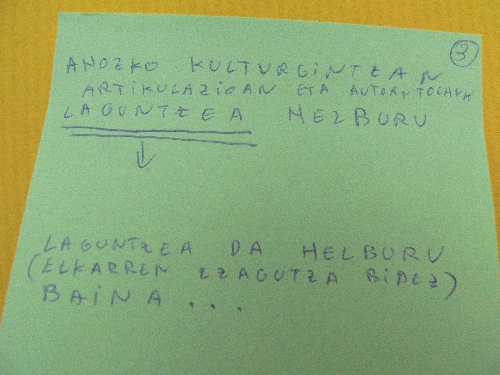 3
AHOZKO KULTURGINTZAN
ARTIKULAZIOAN ETA
LAGUNTZEA HELBURU
LAGUNTZEA DA HELBURU
(ELKARREN EZAGUTZA BIDEZ)
BAINA ...